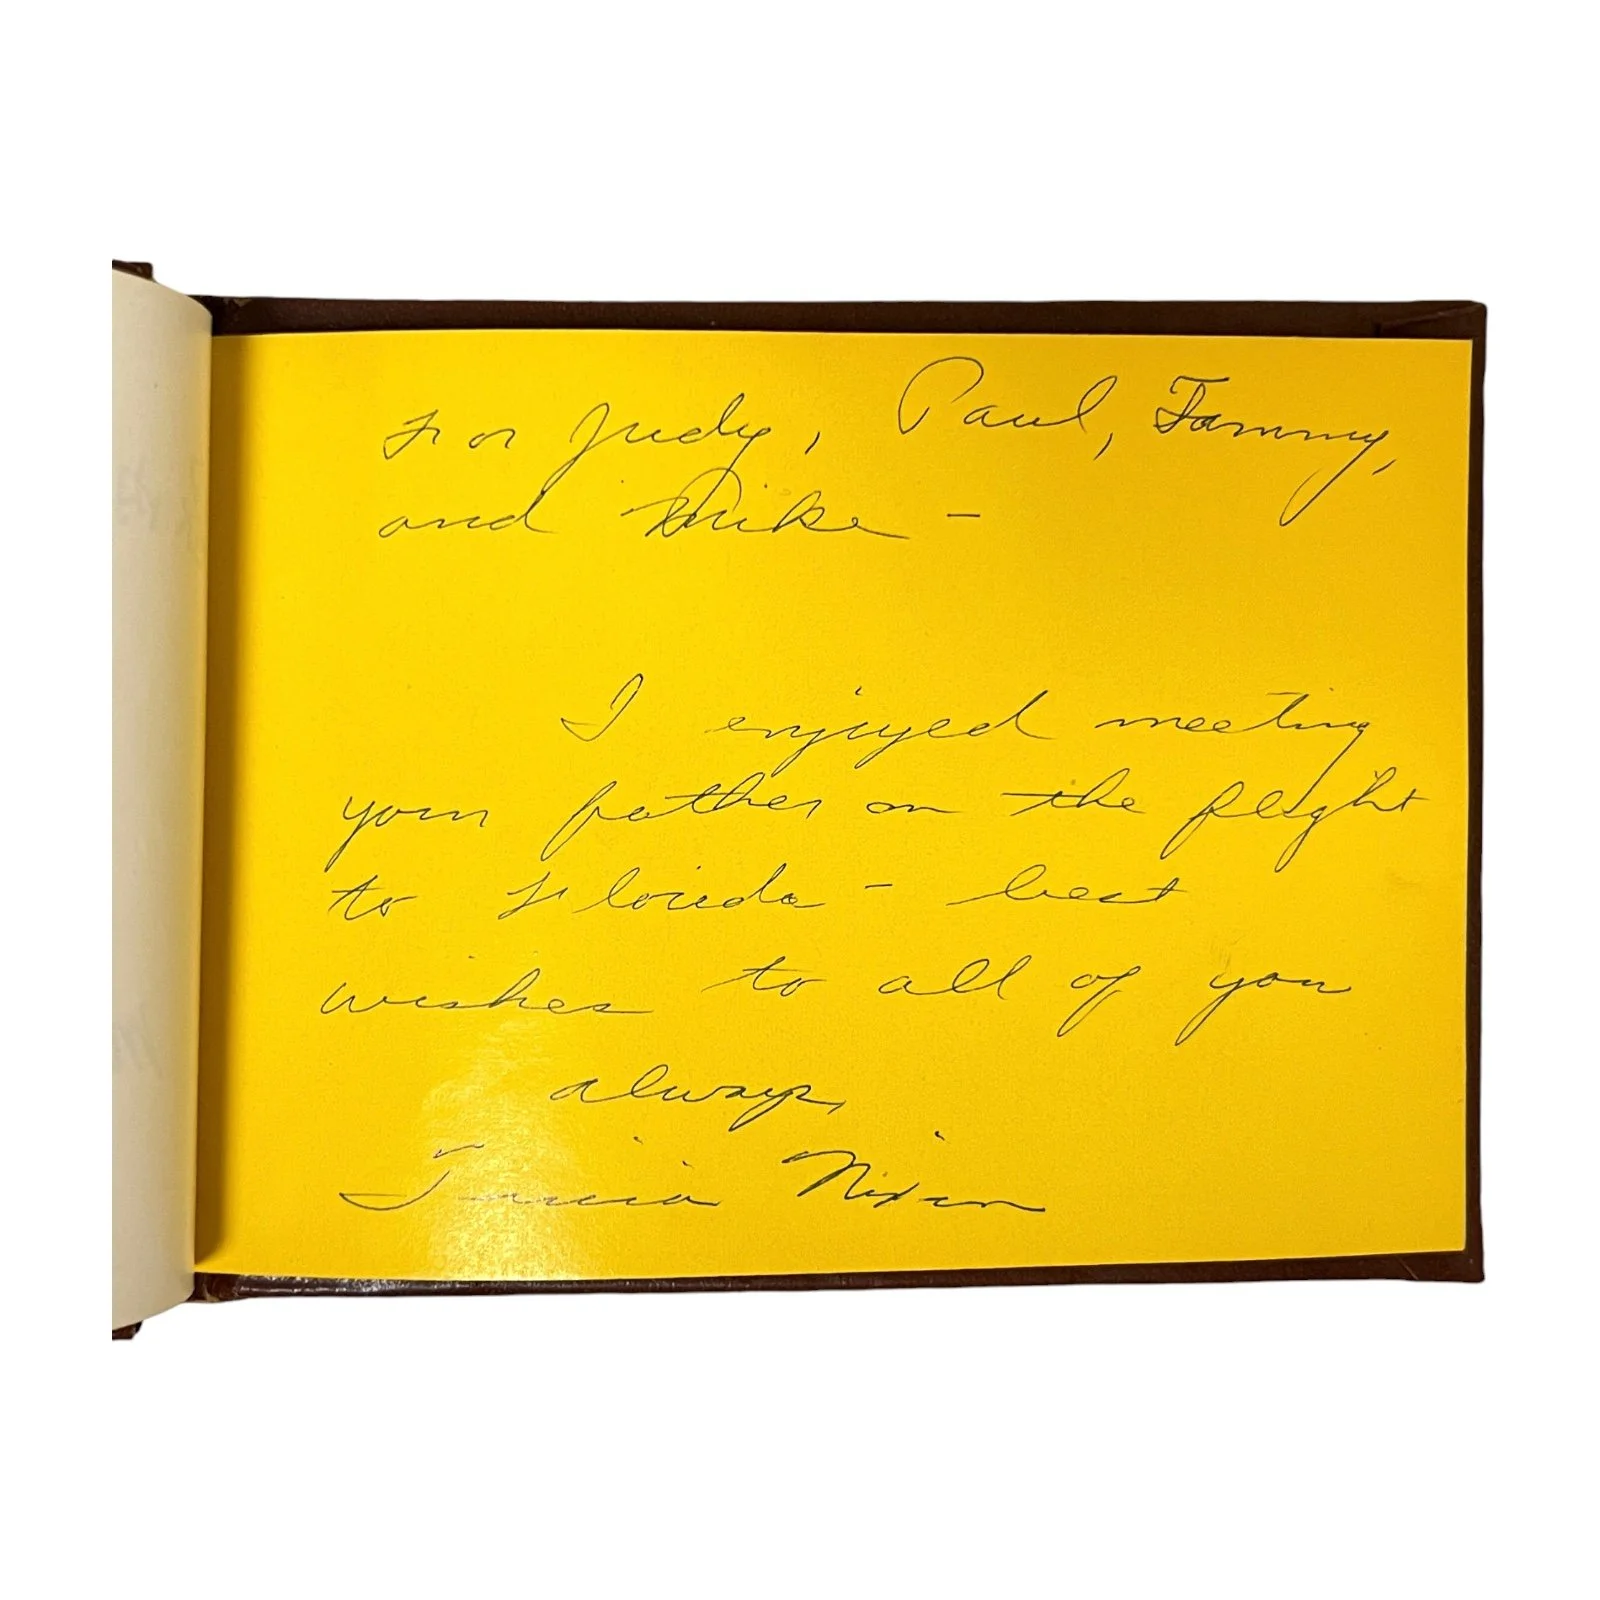 For Judy, Paul, Tammy,
and Mike -
I enjoyed meeting
your father on the flight
to Florida - best
wishes to all of you
always,
Tricia Nixon